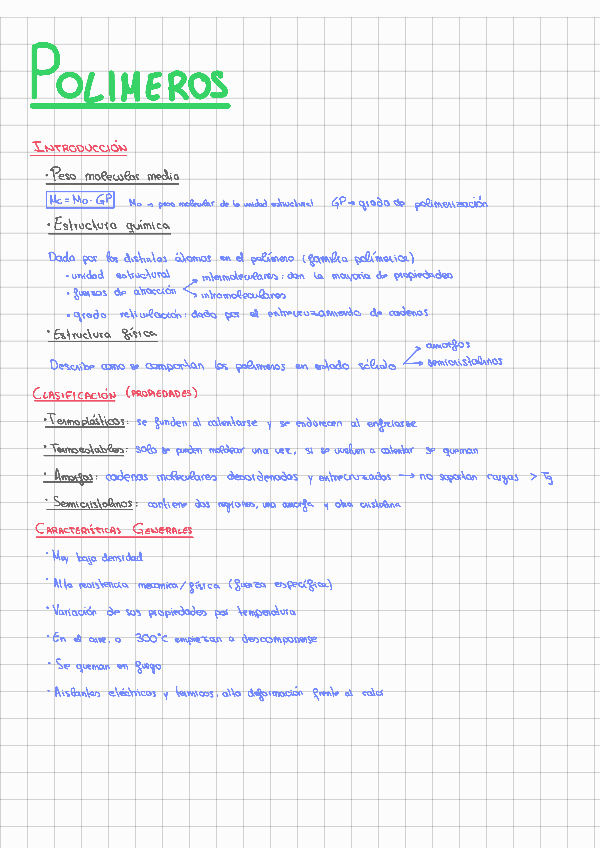 POLIMEROS
INTRODUCCIÓN
· Peso molecular medio
Mc = Mo · GP Mo → peso molecular de la unidad estructural GP → grado de polimerización
· Estructura química
Dada por los distintos átomos en el polímero (familia polímerica)
· unidad estructural
· fuerzas de atracción → intermoleculares: dan la mayoría de propiedades
→ intramoleculares
· grado reticulación: dado por el entrecruzamiento de cadenas
· Estructura física
Describe como se comportan los polimeros en estado sólido → amorfos
→ semicristalinos
CLASIFICACIÓN (PROPIEDADES)
· Termoplásticos: se funden al calentarse y se endurecen al enfriarse
· Termoestables: solo se pueden moldear una vez, si se vuelven a calentar se queman
· Amorfos: cadenas moleculares desordenadas y entrecruzadas → no soportan cargas > Tg
· Semicristalinos: contiene dos regiones, una amorfa y otra cristalina
CARACTERÍSTICAS GENERALES
· Muy baja densidad
· Alta resistencia mecanica/física (fuerza específica)
· Variación de sus propiedades por temperatura
· En el aire, a 300°C empiezan a descomponerse
· Se queman en fuego
· Aislantes eléctricos y termicos, alta deformación frente al calor